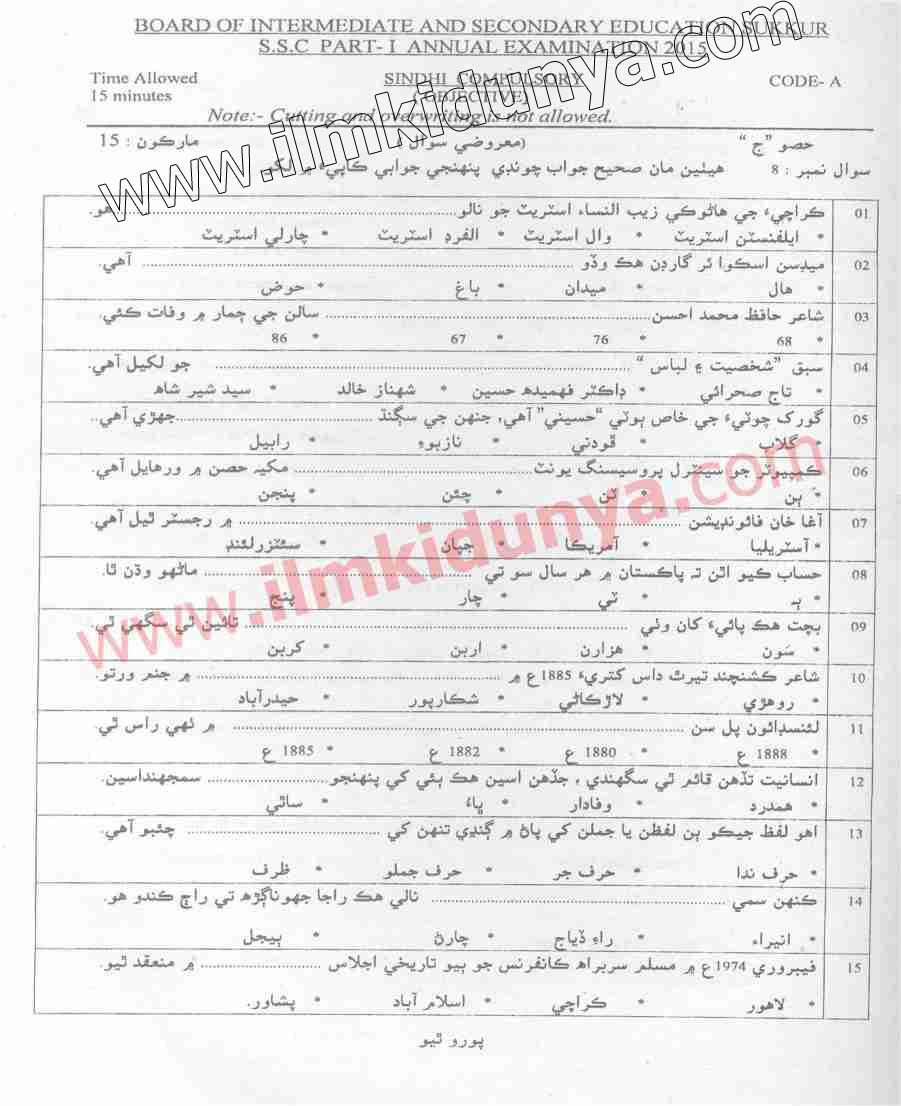 BOARD OF INTERMEDIATE AND SECONDARY EDUCATION SUKKUR
S.S.C PART- I ANNUAL EXAMINATION 2015
Time Allowed
15 minutes
SINDHI COMPULSORY
(OBJECTIVE)
CODE- A
Note:- Cutting and overwriting is not allowed.
www.ilmkidunya.com
حصو ”ج“ (معروضي سوال) مارڪون : 15
سوال نمبر : 8 هيٺين مان صحيح جواب چونڊي پنهنجي جوابي ڪاپيءَ ۾ لکو
01 ڪراچيءَ جي هاڻوڪي زيب النساء اسٽريٽ جو نالو .......... هو.
* ايلفنسٽن اسٽريٽ * وال اسٽريٽ * الفرڊ اسٽريٽ * چارلي اسٽريٽ
02 ميڊسن اسڪوائر گارڊن هڪ وڏو .......... آهي.
* هال * ميدان * باغ * حوض
03 شاعر حافظ محمد احسن .......... سالن جي ڄمار ۾ وفات ڪئي.
* 68 * 76 * 67 * 86
04 سبق ”شخصيت ۽ لباس“ .......... جو لکيل آهي.
* تاج صحرائي * ڊاڪٽر فهميده حسين * شهناز خالد * سيد شير شاهه
05 گورک چوٽيءَ جي خاص ٻوٽي ”حسيني“ آهي، جنهن جي سڳنڌ .......... جهڙي آهي..
* گلاب * ڦودني * نازبوءِ * رابيل
06 ڪمپيوٽر جو سينٽرل پروسيسنگ يونٽ .......... مکيه حصن ۾ ورهايل آهي.
* ٻن * ٽن * چئن * پنجن
07 آغا خان فائونڊيشن .......... ۾ رجسٽر ٿيل آهي.
* آسٽريليا * آمريڪا * جپان * سئٽزرلئنڊ
08 حساب ڪيو اٿن ته پاڪستان ۾ هر سال سو تي .......... ماڻهو وڌن ٿا.
* ٻه * ٽي * چار * پنج
09 بچت هڪ پائيءَ کان وٺي .......... تائين ٿي سگهي ٿي.
* سَون * هزارن * اربن * کربن
10 شاعر ڪشنچند تيرٿ داس کتريءَ 1885ع ۾ .......... ۾ جنم ورتو.
* روهڙي * لاڙڪاڻي * شڪارپور * حيدرآباد
11 لئنسڊائون پل سن .......... ۾ ٺهي راس ٿي.
* 1888 ع * 1880 ع * 1882 ع * 1885 ع
12 انسانيت تڏهن قائم ٿي سگهندي ، جڏهن اسين هڪ ٻئي کي پنهنجو .......... سمجهنداسين.
* همدرد * وفادار * ڀاءُ * ساٿي
13 اهو لفظ جيڪو ٻن لفظن يا جملن کي پاڻ ۾ ڳنڍي تنهن کي .......... چئبو آهي.
* حرف ندا * حرف جر * حرف جملو * ظرف
14 ڪنهن سمي .......... نالي هڪ راجا جهوناڳڙهه تي راڄ ڪندو هو.
* انيراءِ * راءِ ڏياچ * چارڻ * ٻيجل
15 فيبروري 1974ع ۾ مسلم سربراهه ڪانفرنس جو ٻيو تاريخي اجلاس .......... ۾ منعقد ٿيو.
* لاهور * ڪراچي * اسلام آباد * پشاور.
www.ilmkidunya.com
پورو ٿيو